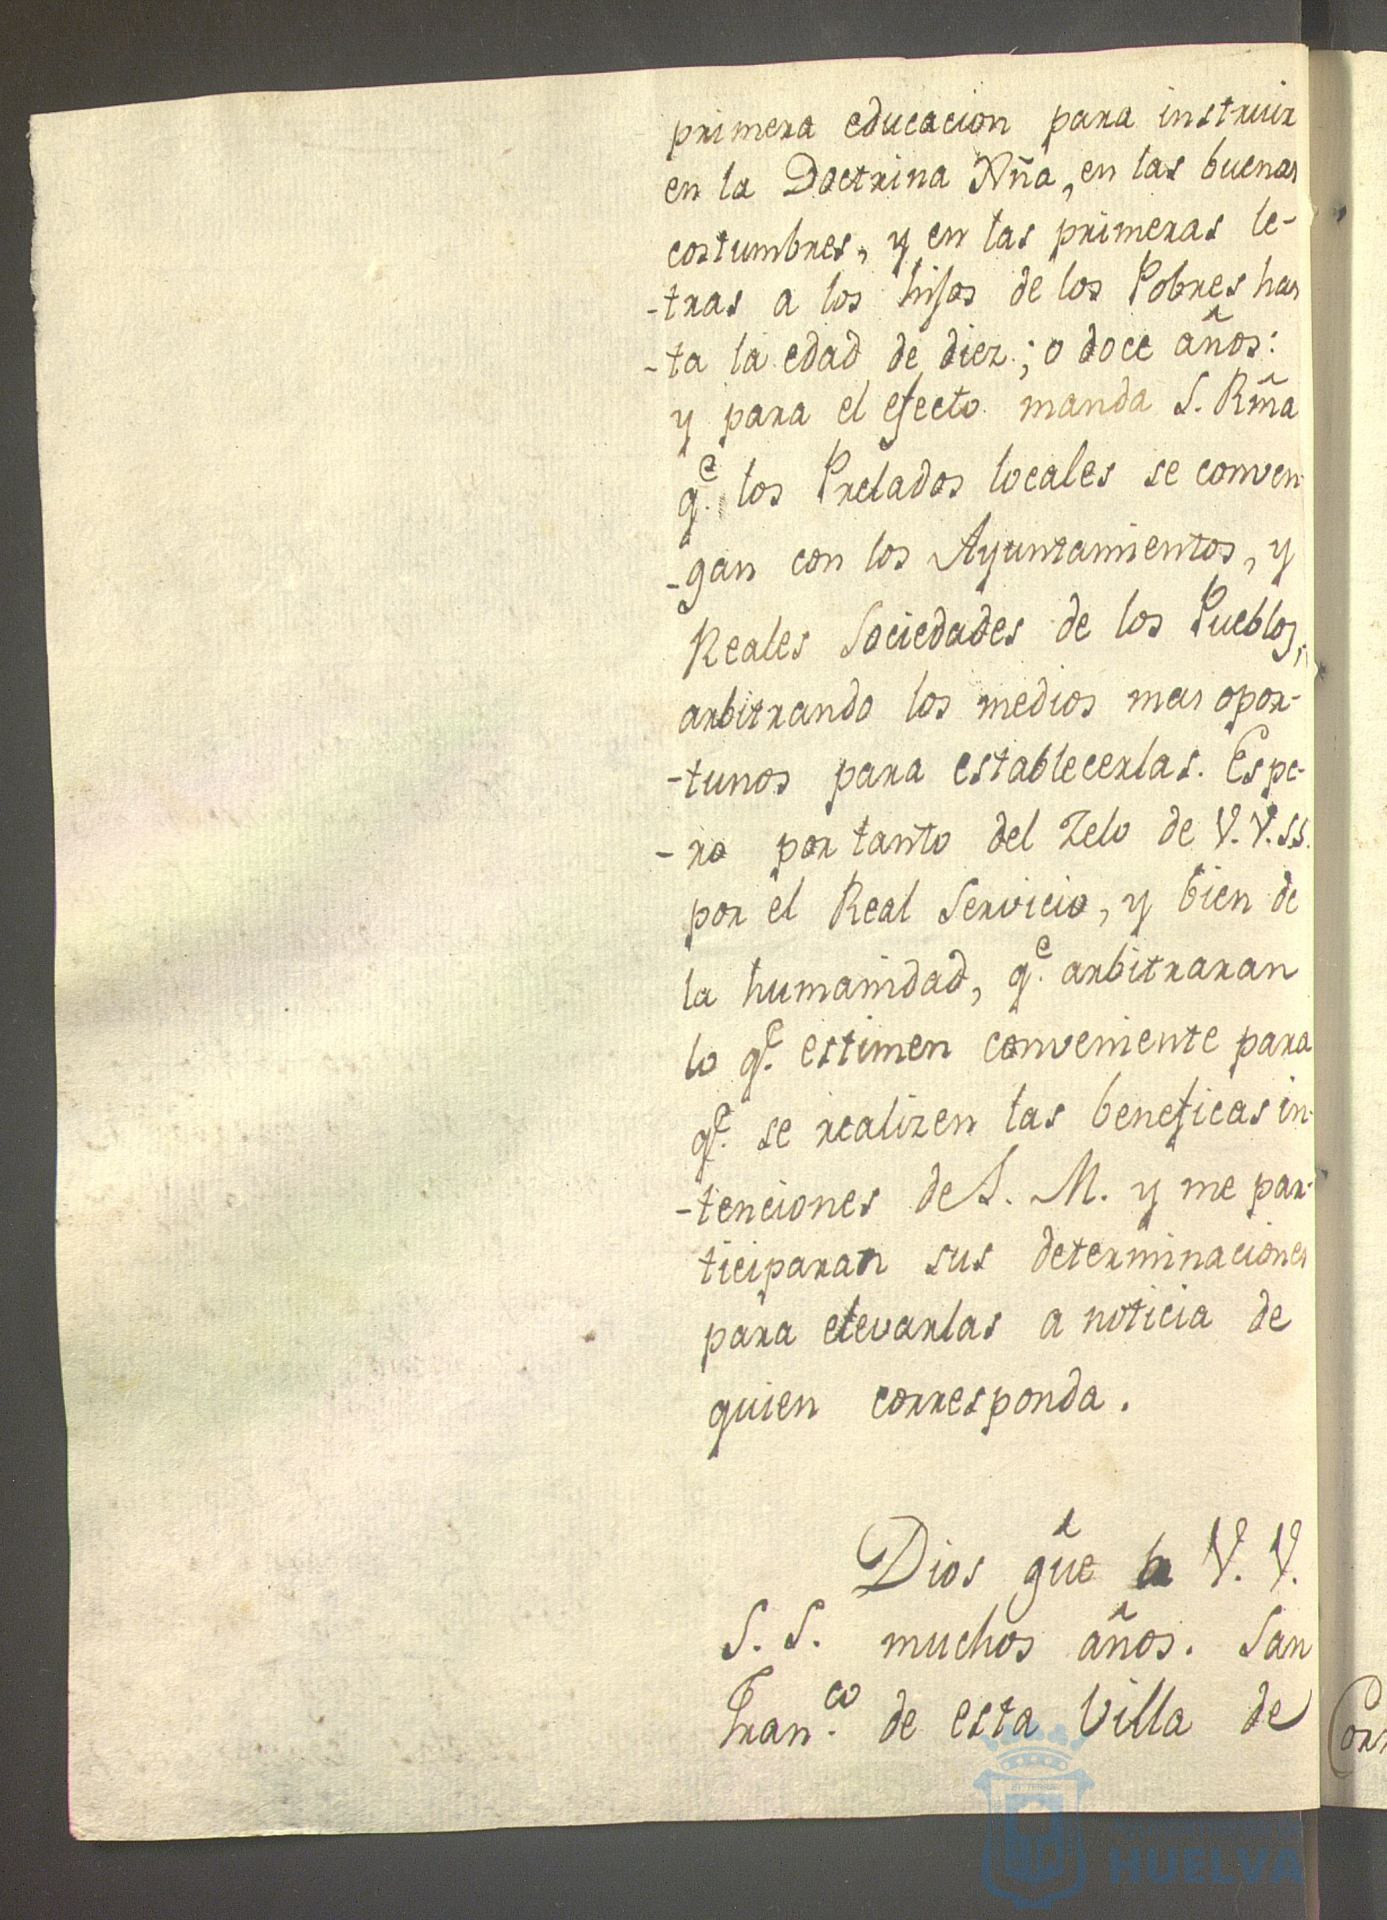 primera educacion para instruir
en la Doctrina Xña, en las buenas
costumbres, y en las primeras le-
-tras a los hijos de los Pobres has
-ta la edad de diez; o doce años:
y para el efecto manda S. Rm̃a
qᵉ. los Prelados locales se conven-
-gan con los Ayuntamientos, y
Reales Sociedades de los Pueblos,
arbitrando los medios mas opor-
-tunos para establecerlas. Espe-
-ro por tanto del Zelo de V.V.SS.
por el Real Servicio, y bien de
la humanidad, qᵉ. arbitraran
lo qᵉ. estimen conveniente para
qᵉ. se realizen las beneficas in-
-tenciones de S. M. y me par-
ticiparan sus determinaciones
para elevarlas a noticia de
quien corresponda.
Dios gũe a V. V.
S. S. muchos años. San
Fran.ᶜᵒ de esta Villa de
HUELVA